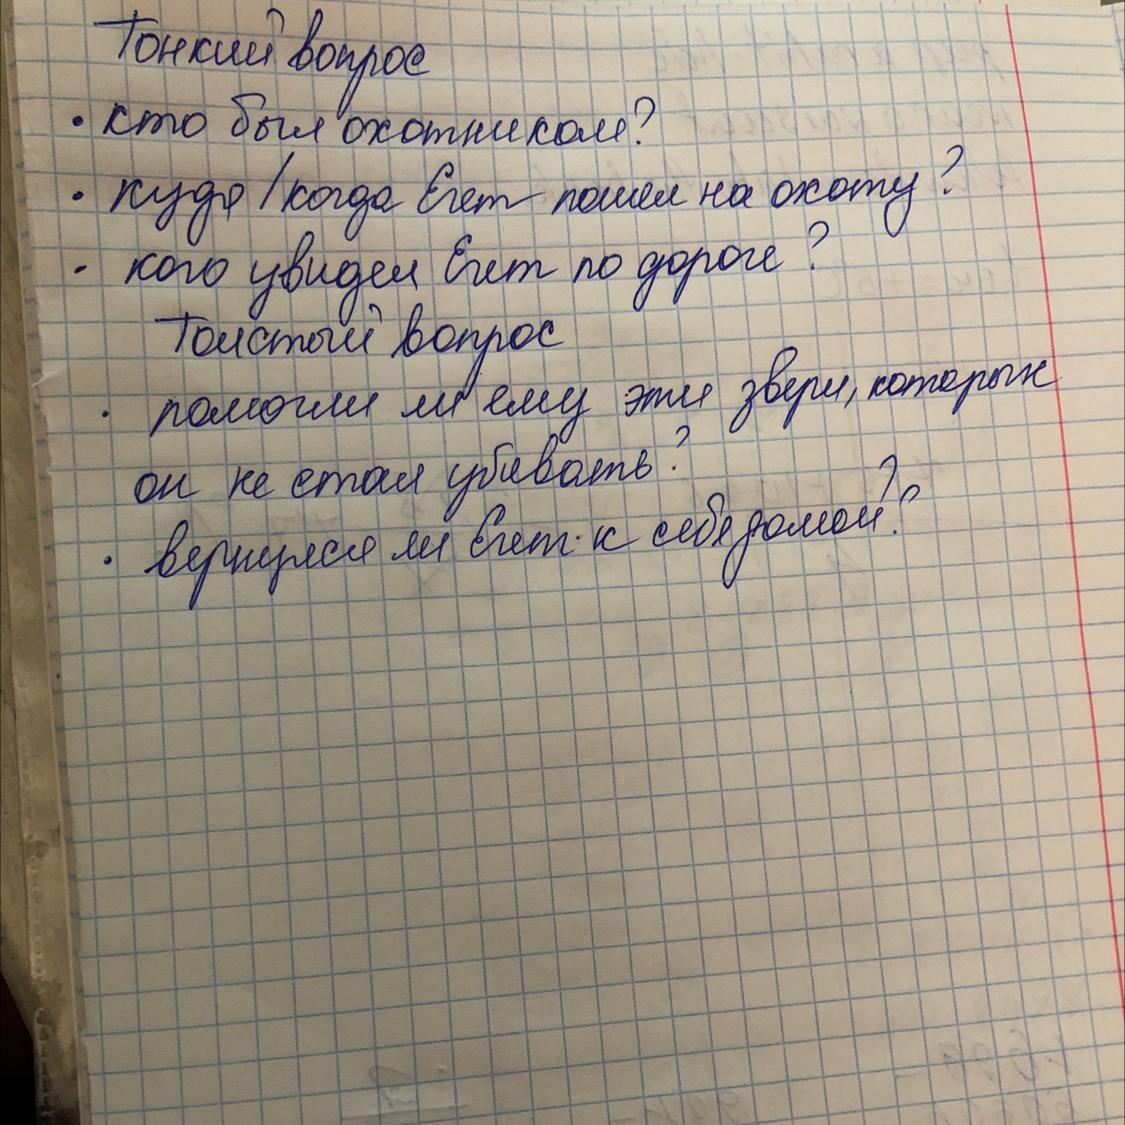 Тонкий вопрос
• кто был охотником?
• куда / когда Егет пошел на охоту?
• кого увидел Егет по дороге?
Толстый вопрос
• помогли ли ему эти звери, которых
он не стал убивать?
• вернулся ли Егет к себя домой?